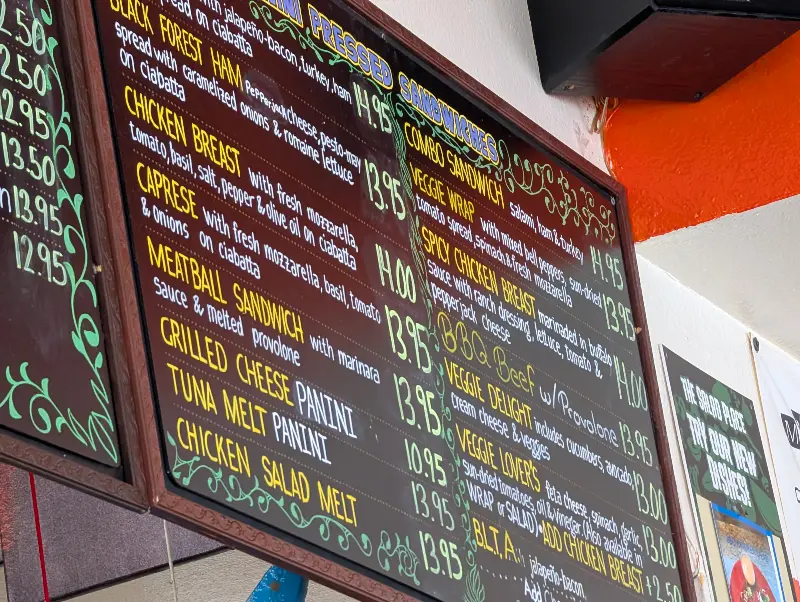 2.50
2.50
12.95
13.50
13.95
12.95
PRESSED SANDWICHES
with jalapeño-bacon, turkey, ham
spread on ciabatta 14.95
BLACK FOREST HAM Pepperjack cheese, pesto-mayo
spread with caramelized onions & romaine lettuce
on ciabatta 13.95
CHICKEN BREAST with fresh mozzarella,
tomato, basil, salt, pepper & olive oil on ciabatta 14.00
CAPRESE with fresh mozzarella, basil, tomato
& onions on ciabatta 13.95
MEATBALL SANDWICH with marinara
sauce & melted provolone 13.95
GRILLED CHEESE PANINI 10.95
TUNA MELT PANINI 13.95
CHICKEN SALAD MELT 13.95
COMBO SANDWICH Salami, ham & turkey 14.95
VEGGIE WRAP with mixed bell peppers, sun-dried
tomato spread, spinach & fresh mozzarella 13.95
SPICY CHICKEN BREAST marinaded in buffalo
sauce with ranch dressing, lettuce, tomato &
pepperjack cheese 14.00
BBQ Beef w/Provolone 13.95
VEGGIE DELIGHT includes cucumbers, avocado
cream cheese & veggies 13.00
VEGGIE LOVER'S Feta cheese, spinach, garlic,
sun-dried tomatoes, oil & vinegar (Also available in
WRAP or SALAD) 13.00
ADD CHICKEN BREAST +2.50
B.L.T.A. jalapeño-bacon
Add
THE SALAD PLACE
TRY OUR NEW
DISHES!